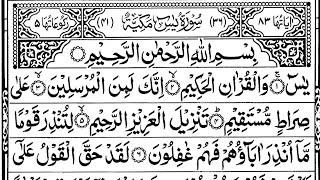 اٰیَاتُهَا ٨٣ (٣٦) سُوْرَةُ یٰسٓ مَكِّیَّةٌ (٤١) رُكُوْعَاتُهَا ٥
بِسْمِ اللّٰهِ الرَّحْمٰنِ الرَّحِیْمِ
یٰسٓ ۝١ وَالْقُرْاٰنِ الْحَكِیْمِ ۝٢ اِنَّكَ لَمِنَ الْمُرْسَلِیْنَ ۝٣ عَلٰی
صِرَاطٍ مُّسْتَقِیْمٍ ۝٤ تَنْزِیْلَ الْعَزِیْزِ الرَّحِیْمِ ۝٥ لِتُنْذِرَ قَوْمًا
مَّاۤ اُنْذِرَ اٰبَآؤُهُمْ فَهُمْ غٰفِلُوْنَ ۝٦ لَقَدْ حَقَّ الْقَوْلُ عَلٰۤی